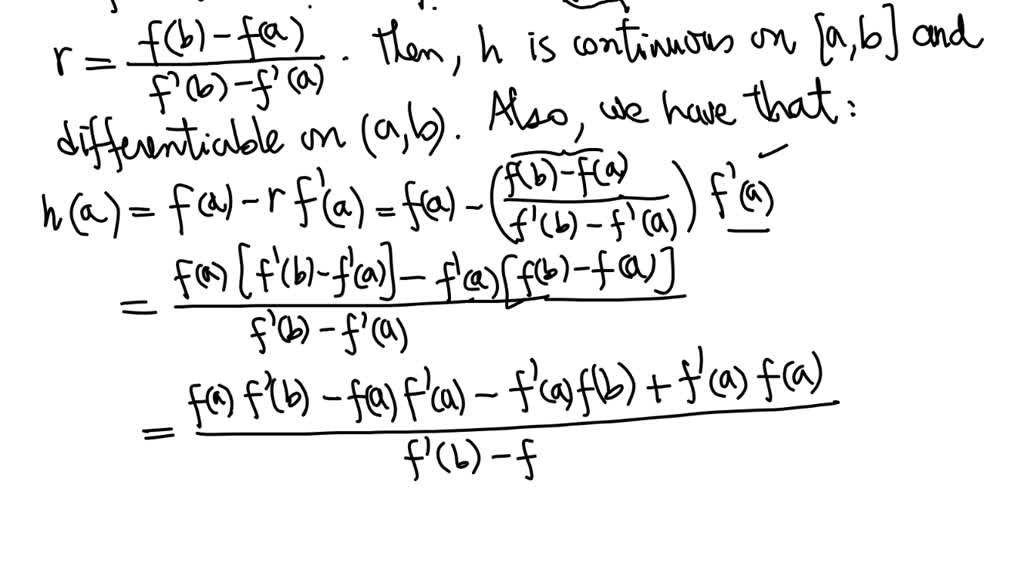 r = \frac{f(b) - f(a)}{f'(b) - f'(a)}. Then, h is continuous on [a,b] and
differentiable on (a,b). Also, we have that:
h(a) = f(a) - r f'(a) = f(a) - \left(\frac{f(b) - f(a)}{f'(b) - f'(a)}\right) f'(a) ✓
= \frac{f(a) [f'(b) - f'(a)] - f'(a) [f(b) - f(a)]}{f'(b) - f'(a)}
= \frac{f(a) f'(b) - f(a) f'(a) - f'(a) f(b) + f'(a) f(a)}{f'(b) - f}